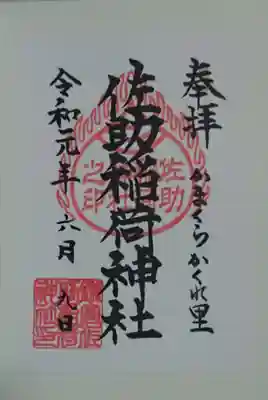 奉拝
かまくらかくれ里
佐助稲荷神社
令和元年六月
九日
佐助
之印